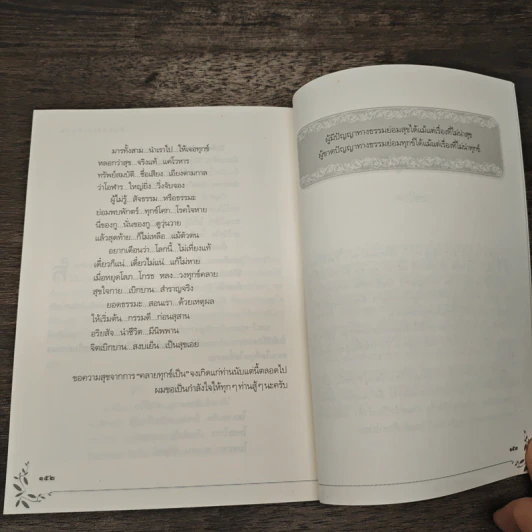 มารทั้งสาม...นำเราไป...ให้เจอทุกข์
หลอกว่าสุข...จริงแท้...แค่โวหาร
ทรัพย์สมบัติ...ชื่อเสียง...เมียงตามกาล
ว่าโอฬาร...ใหญ่ยิ่ง...วิ่งจับจอง
ผู้ไม่รู้...สัจธรรม...หรือธรรมะ
ย่อมพบพักตร์...ทุกข์โศก...โรคใจหาย
นี่ของกู...นั่นของกู...ดูวุ่นวาย
แล้วสุดท้าย...ก็ไม่เหลือ...แม้ตัวตน
อยากเตือนว่า...โลกนี้...ไม่เที่ยงแท้
เดี๋ยวก็แน่...เดี๋ยวไม่แน่...แก้ไม่หาย
เมื่อหยุดโลภ...โกรธ หลง...วงทุกข์คลาย
สุขใจกาย...เบิกบาน...สำราญจริง
ยอดธรรมะ...สอนเรา...ด้วยเหตุผล
ให้เริ่มต้น...กรรมดี...ก่อนสุสาน
อริยสัจ...นำชีวิต...มีนิพพาน
จิตเบิกบาน...สงบเย็น...เป็นสุขเอย
ขอความสุขจากการ "คลายทุกข์เป็น" จงเกิดแก่ท่านนับแต่นี้ตลอดไป
ผมขอเป็นกำลังใจให้ทุก ๆ ท่านสู้ ๆ นะครับ
๑๕๒
ผู้มีปัญญาทางธรรมย่อมสุขได้แม้แต่เรื่องที่ไม่น่าสุข
ผู้ขาดปัญญาทางธรรมย่อมทุกข์ได้แม้แต่เรื่องที่ไม่น่าทุกข์